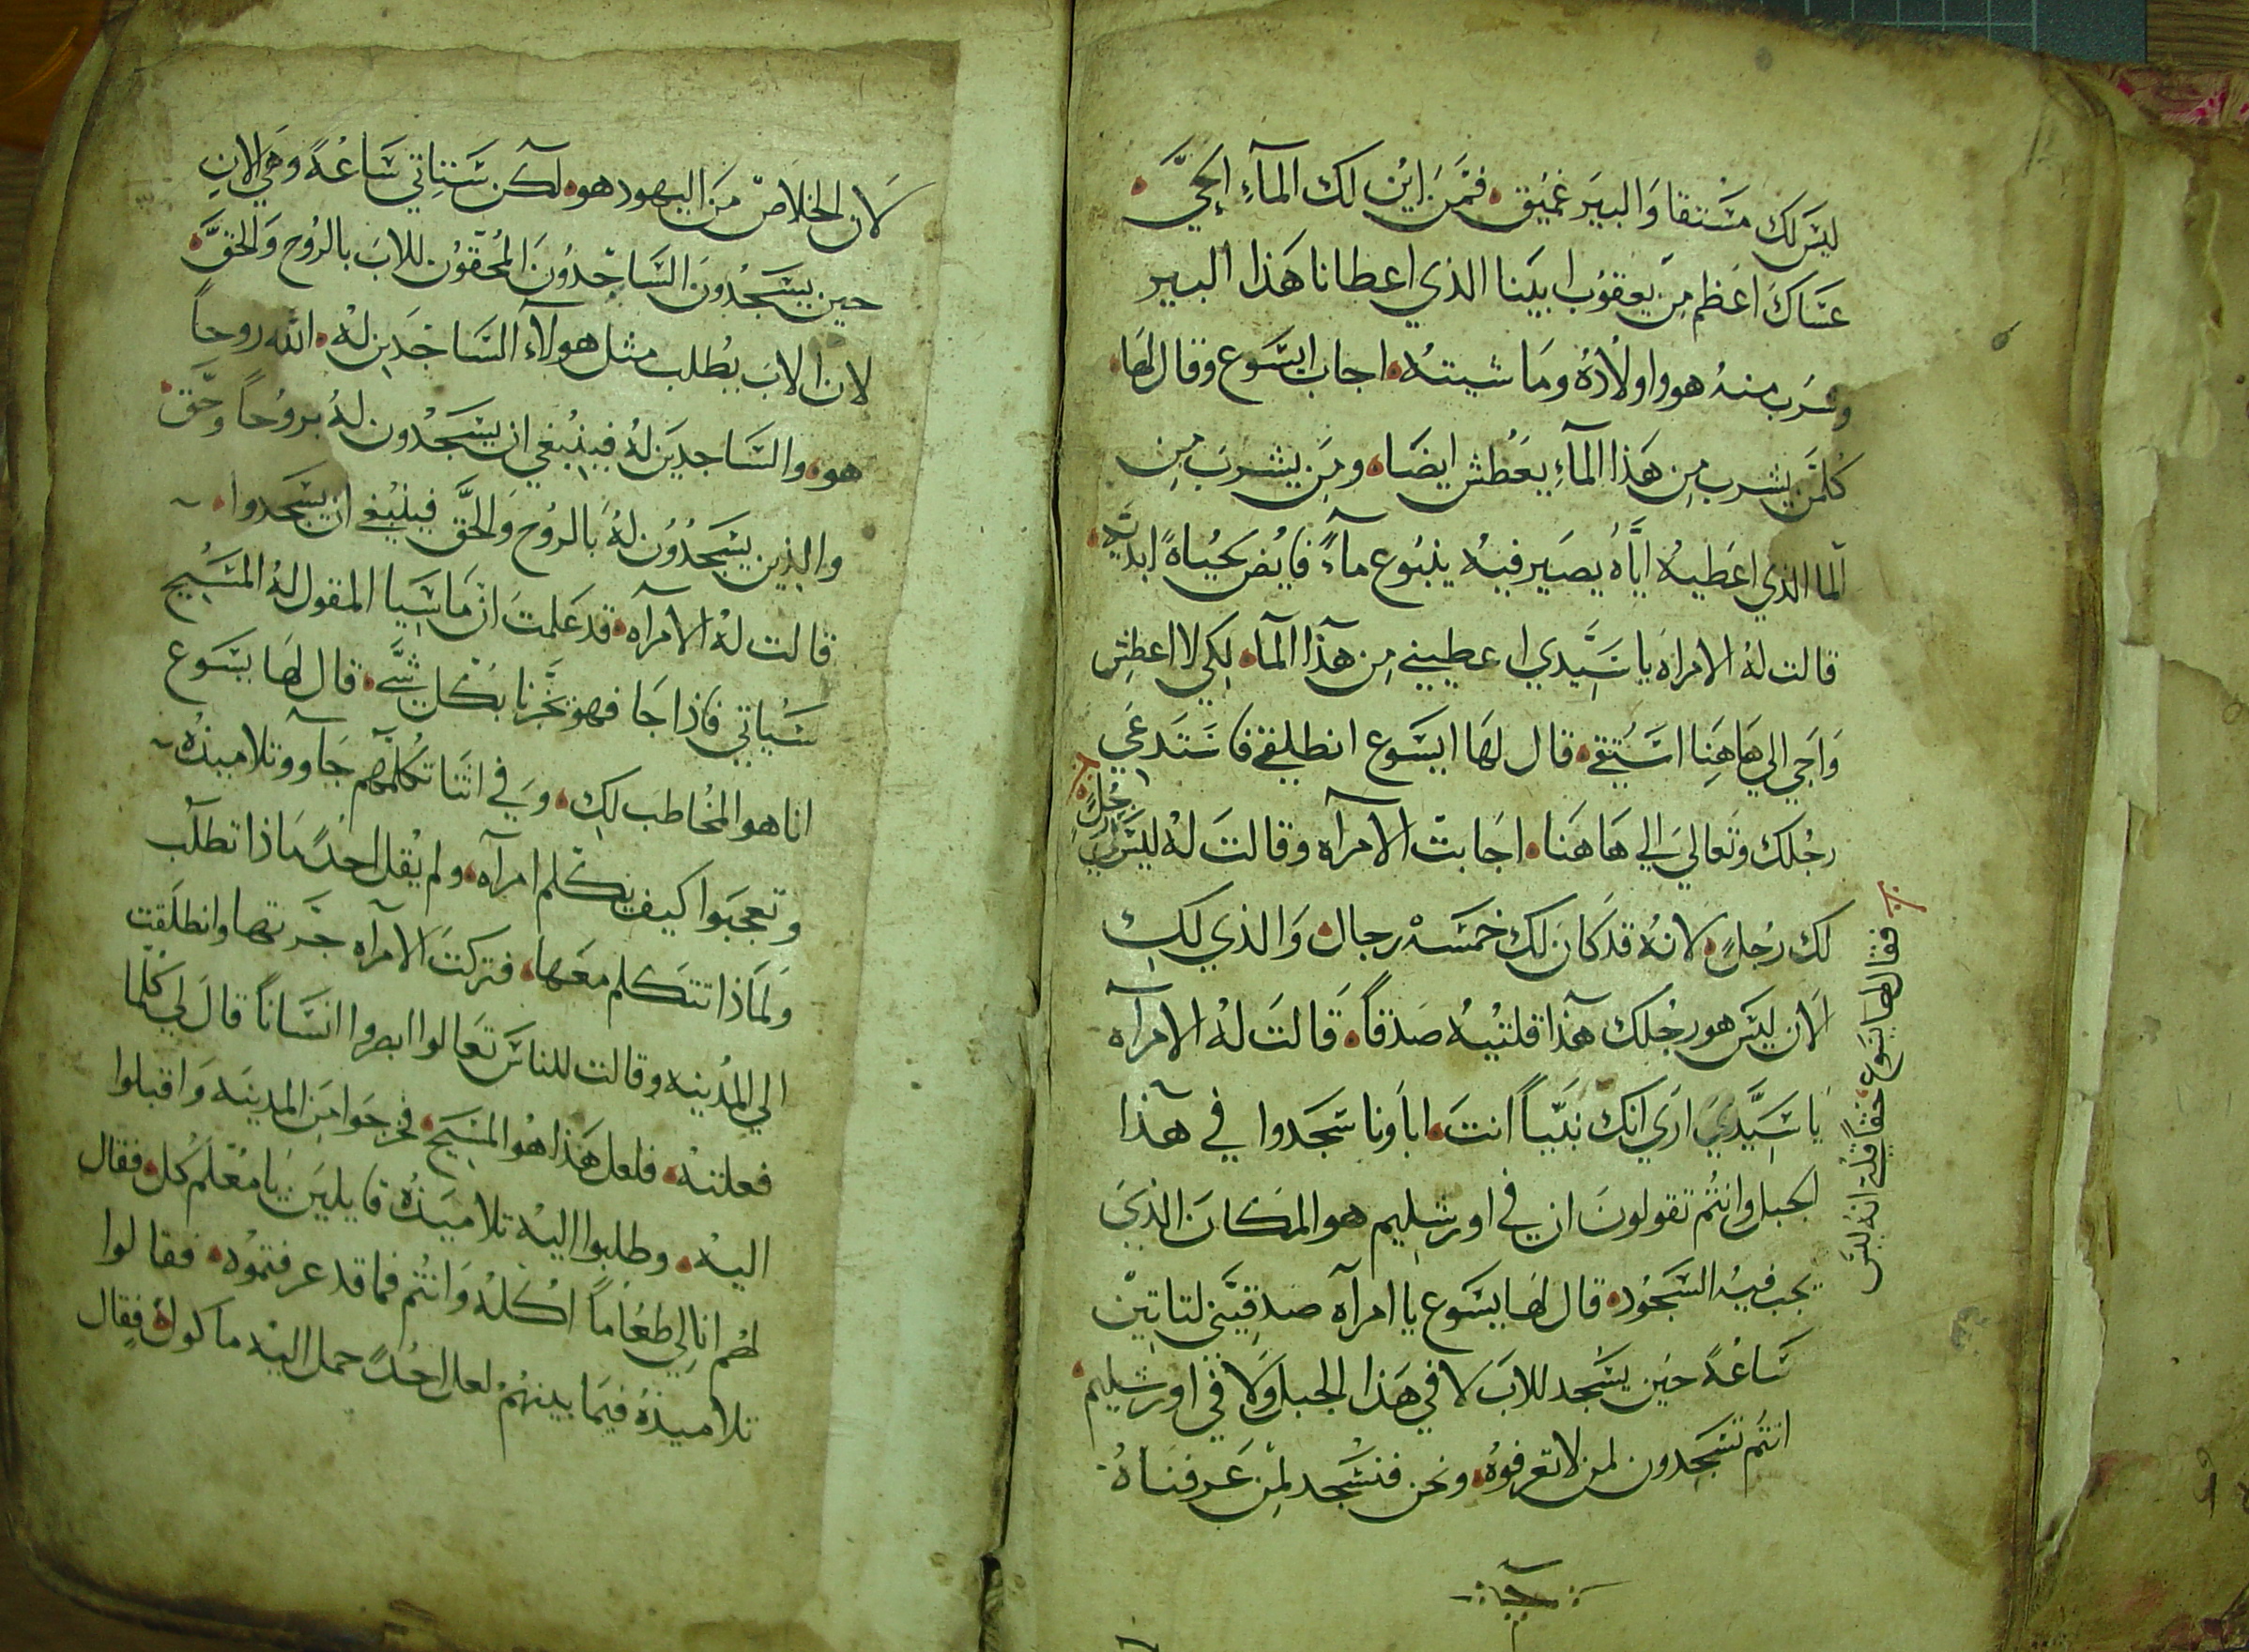 ليس لك مستقا والبير غميق فمن اين لك المآء الحي
عساك اعظم من يعقوب ابينا الذي اعطانا هذا البير
وشرب منه هو واولاده وماشيته اجاب ايسوع وقال لها
كلمن يشرب من هذا المآء يعطش ايضا ومن يشرب من
الما الذي اعطيه اياه يصير فيه ينبوع مآء فايض لحياة ابديه
قالت له الامراه يا سيدي اعطيني من هذا المآ لكي لا اعطش
واجي الي هاهنا استقي قال لها ايسوع انطلقي فاستدعي
رجلك وتعالي الي هاهنا اجابت الامرآه وقالت له ليس لي
رجل
فقال لها يسوع حقا قلتي انه ليس
لك رجل لانه قد كان لك خمسه رجال والذي لك
الان ليس هو رجلك هذا قلتيه صدقا قالت له الامرآه
يا سيدي اري انك نبيا انت اباونا سجدوا في هذا
الجبل وانتم تقولون ان في اورشليم هو المكان الذي
يجب فيه السجود قال لها يسوع يا امرآه صدقيني لتاتين
ساعة حين يسجد للاب لا في هذا الجبل ولا في اورشليم
انتم تسجدون لمن لا تعرفوه ونحن فنسجد لمن عرفناه
لان الخلاص من اليهود هو لكن ستاتي ساعة وهي الان
حين يسجدون الساجدون المحقون للاب بالروح والحق
لان الاب يطلب مثل هولآء الساجدين له الله روحا
هو والساجدين له فينبغي ان يسجدون له بروحا وحق
والذين يسجدون له بالروح والحق فينبغي ان يسجدوا
قالت له الامرآه قد علمت ان ماسيا المقول له المسيح
سياتي فاذا جا فهو يخبرنا بكل شي قال لها يسوع
انا هو المخاطب لك وفي اثنا تكلمهم جآوو تلاميذه
وتعجبوا كيف يتكلم امرآه ولم يقل احد ماذا تطلب
ولماذا تتكلم معها فتركت الامرآه جرتها وانطلقت
الي المدينه وقالت للناس تعالوا ابصروا انسانا قال لي كلما
فعلته فلعل هذا هو المسيح فخرجوا من المدينه واقبلوا
اليه وطلبوا اليه تلاميذه قايلين يا معلم كل فقال
لهم انا لي طعاما اكله وانتم فما قد عرفتموه فقالوا
تلاميذه فيما بينهم لعل احد حمل اليه ماكولا فقال